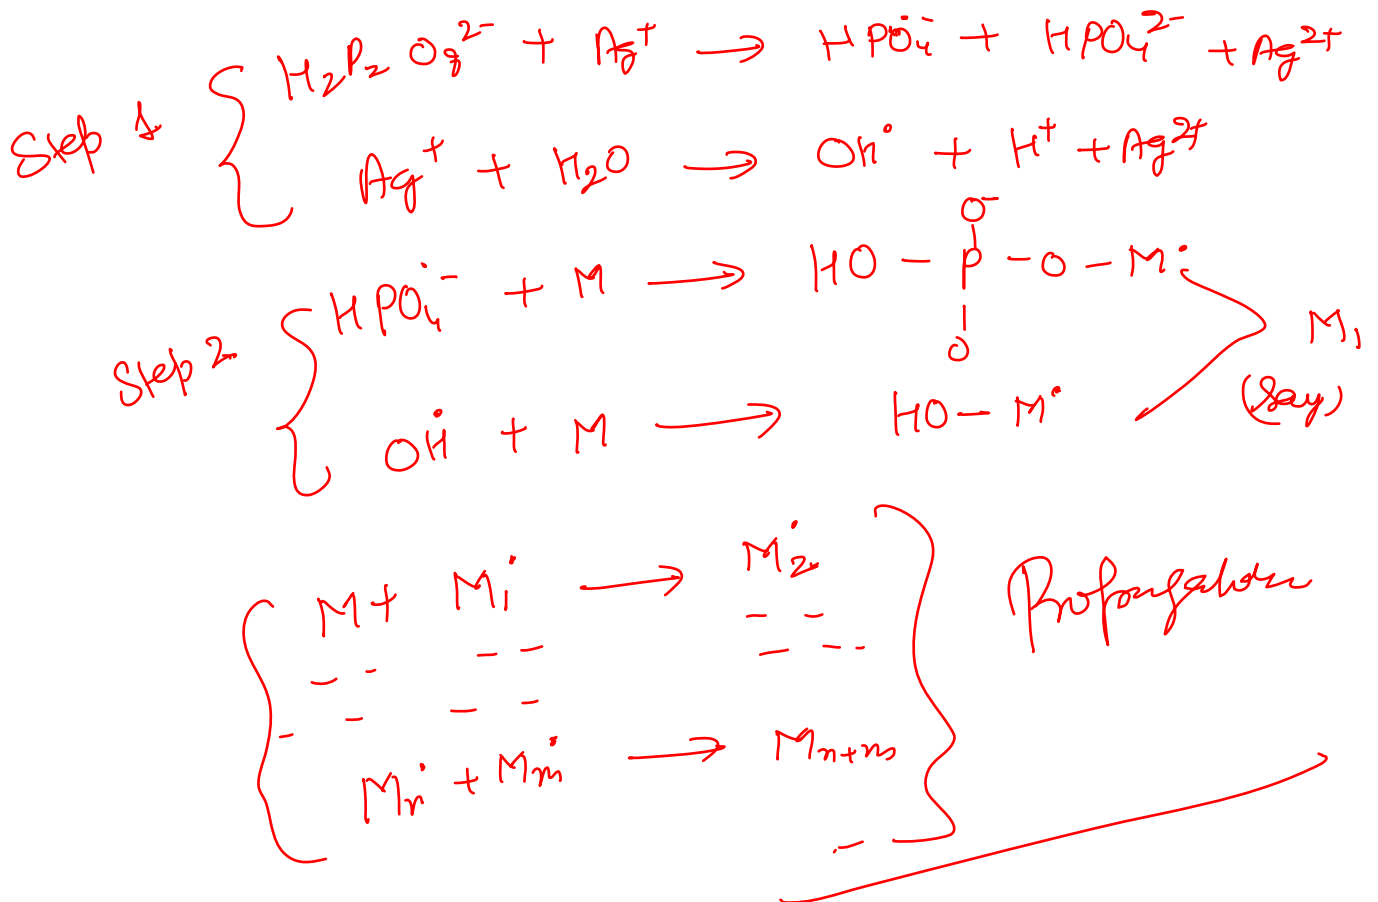 Step 1
H₂P₂O₈²⁻ + Ag⁺ → HPO₄˙⁻ + HPO₄²⁻ + Ag²⁺
Ag⁺ + H₂O → OH˙ + H⁺ + Ag²⁺
Step 2
HPO₄˙⁻ + M → HO – P – O – M˙
O⁻
O
OH˙ + M → HO – M˙
M₁
(Say)
M + M₁˙ → M₂˙
Mn˙ + Mm˙ → Mn+m
Propongation